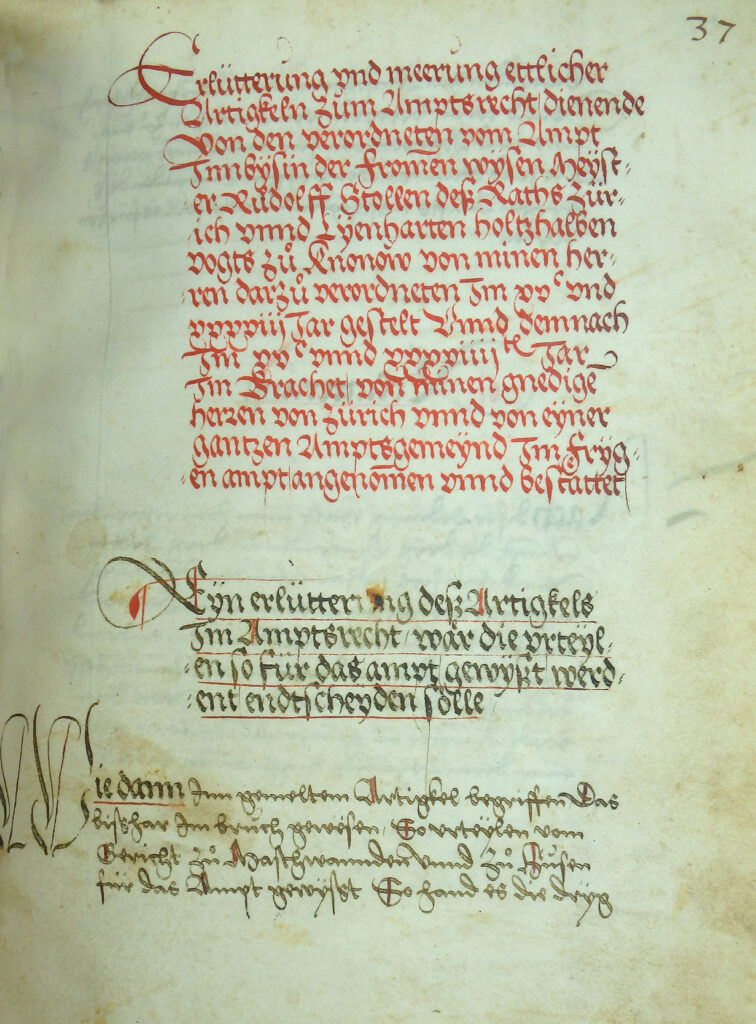 37
Erlütterung vnd meerung ettlicher
Artigkeln zum Amptsrecht dienende
Von den verordneten vom Ampt
Innbysin der fromen wysen Meyst-
er Rüdolff Stollen deß Raths Zür-
ich vnnd Lyenharten holtzhalben
vogts zů Knonow von minen her-
ren darzů verordneten Im xvᶜ vnd
xxxxiij Jar gestelt Vnnd demnach
Im xvᶜ vnnd xxxxiiij Jar
Im Brachet von minen gnedigē
herren von Zürich vnnd von eyner
gantzen Amptsgemeynd Im fryg-
en ampt angenom̄en vnnd bestättet
Eyn erlütterung deß Artigkels
Im Amptsrecht, wär die vrteyl-
en so für das ampt gewyßt werd-
ent endtscheyden sölle
Wie dann Inn gemeltem Artigkel begriffen Das
bißhar Im bruch gewesen, So vrteylen vom
Gericht zů Maschwannden vnnd zů Husen
für das Ampt gewyßt So hand es die dryg